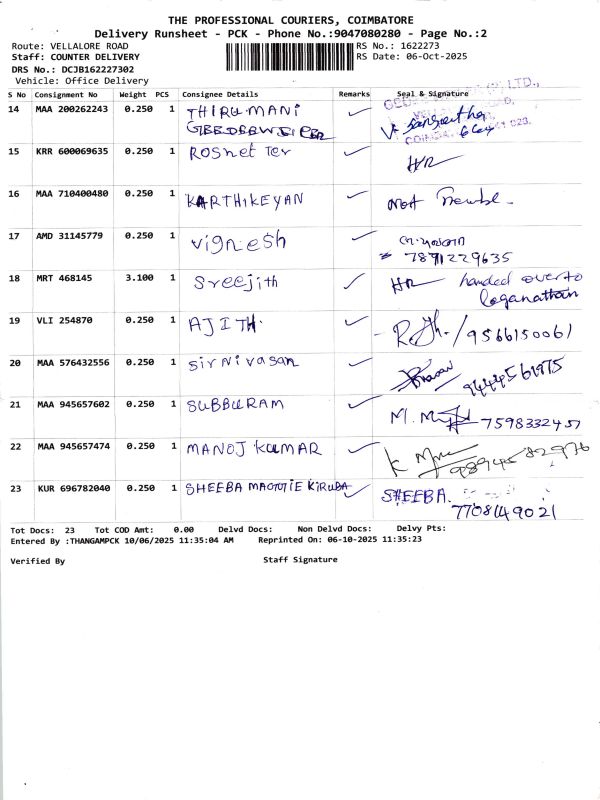 THE PROFESSIONAL COURIERS, COIMBATORE
Delivery Runsheet - PCK - Phone No.:9047080280 - Page No.:2
Route: VELLALORE ROAD
Staff: COUNTER DELIVERY
DRS No.: DCJB162227302
Vehicle: Office Delivery
RS No.: 1622273
RS Date: 06-Oct-2025
S No Consignment No Weight PCS Consignee Details Remarks Seal & Signature
14 MAA 200262243 0.250 1 THIRUMANI
15 KRR 600069635 0.250 1 ROSnet Ter ✓ HR
16 MAA 710400480 0.250 1 KARTHIKEYAN ✓
17 AMD 31145779 0.250 1 Vignesh ✓
7891229635
18 MRT 468145 3.100 1 Sreejith ✓ HR handed over to
loganathan
19 VLI 254870 0.250 1 AJITH ✓ 9566150061
20 MAA 576432556 0.250 1 sirnivasan ✓ 9444561975
21 MAA 945657602 0.250 1 SUBBURAM ✓ 7598332457
22 MAA 945657474 0.250 1 MANOJ KUMAR ✓ 9894582976
23 KUR 696782040 0.250 1 SHEEBA KIRUBA ✓ SHEEBA.
7708149021
Tot Docs: 23 Tot COD Amt: 0.00 Delvd Docs: Non Delvd Docs: Delvy Pts:
Entered By :THANGAMPCK 10/06/2025 11:35:04 AM Reprinted On: 06-10-2025 11:35:23
Verified By Staff Signature